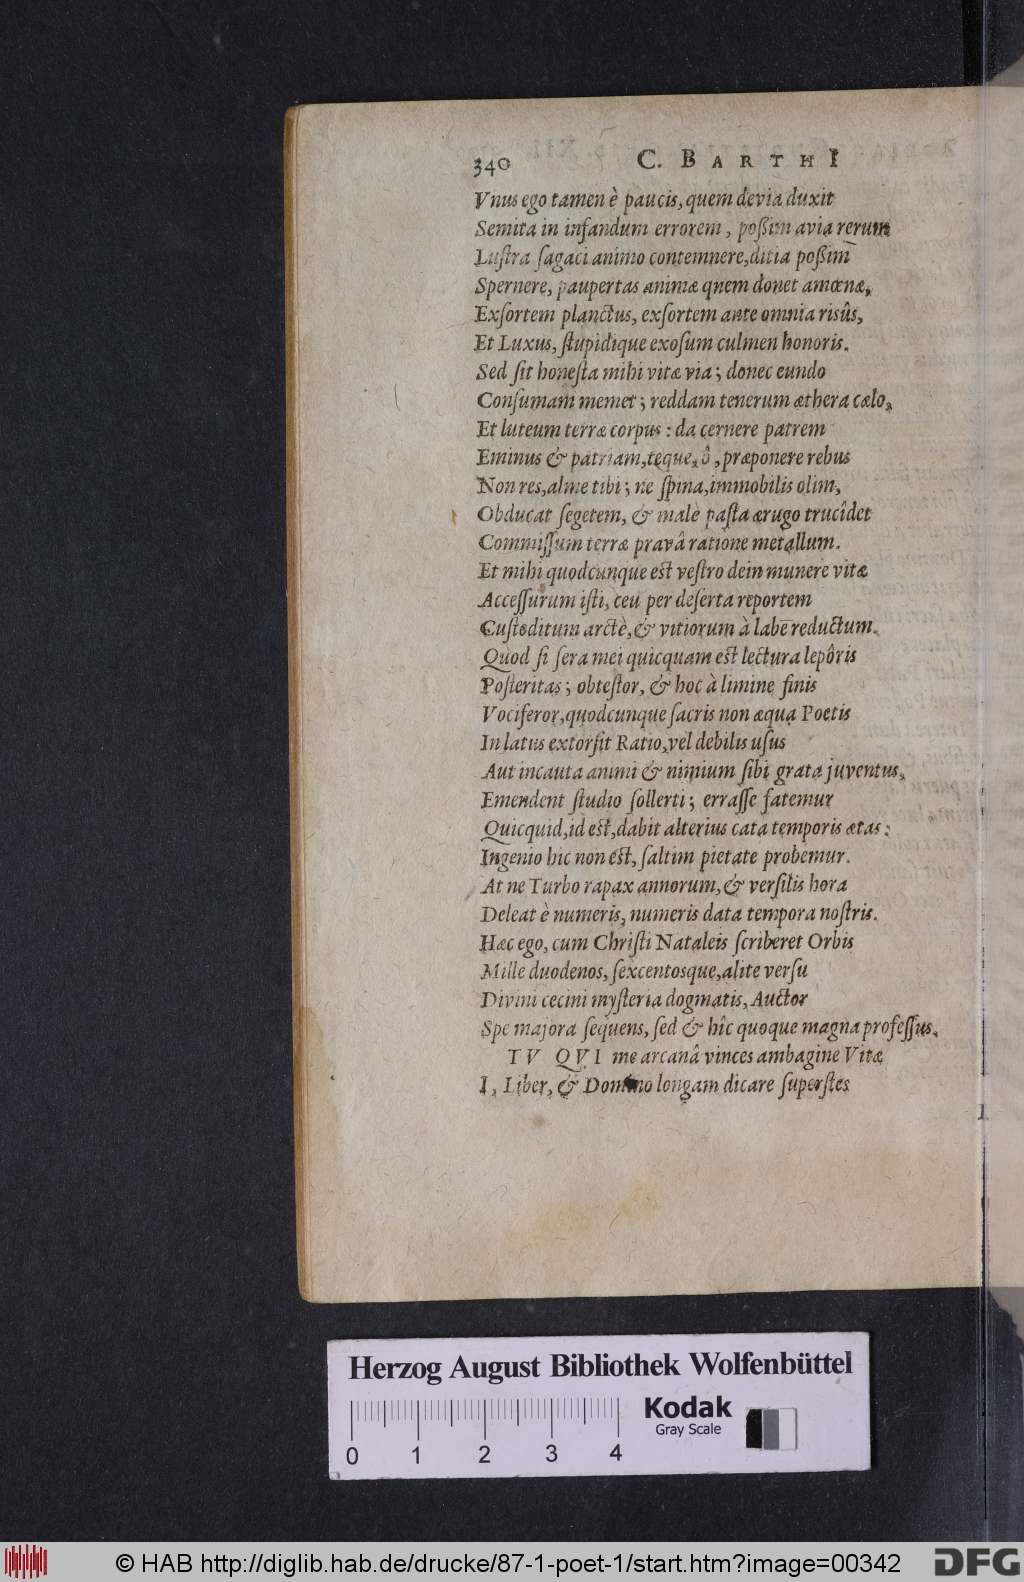 340 C. BARTHI
Vnus ego tamen è paucis, quem devia duxit
Semita in infandum errorem, poßim avia rerum
Lustra sagaci animo contemnere, ditia poßim
Spernere, paupertas animæ quem donet amœnæ,
Exsortem planctus, exsortem ante omnia risûs,
Et Luxus, stupidique exosum culmen honoris.
Sed sit honesta mihi vitæ via; donec eundo
Consumam memet; reddam tenerum æthera cælo,
Et luteum terræ corpus: da cernere patrem
Eminus & patriam, teque, ô, præponere rebus
Non res, alme tibi; ne spina, immobilis olim,
Obducat segetem, & malè pasta ærugo trucîdet
Commissum terræ pravâ ratione metallum.
Et mihi quodcunque est vestro dein munere vitæ
Accessurum isti, ceu per deserta reportem
Custoditum arctè, & vitiorum à labe reductum.
Quod si sera mei quicquam est lectura lepôris
Posteritas; obtestor, & hoc à limine finis
Vociferor, quodcunque sacris non æqua Poetis
In latus extorsit Ratio, vel debilis usus
Aut incauta animi & nimium sibi grata juventus,
Emendent studio sollerti; errasse fatemur
Quicquid, id est, dabit alterius cata temporis ætas:
Ingenio hic non est, saltim pietate probemur.
At ne Turbo rapax annorum, & versilis hora
Deleat è numeris, numeris data tempora nostris.
Hæc ego, cum Christi Nataleis scriberet Orbis
Mille duodenos, sexcentosque, alite versu
Divini cecini mysteria dogmatis, Auctor
Spe majora sequens, sed & hîc quoque magna professus.
TV QVI me arcanâ vinces ambagine Vitæ
I, Liber, & Domino longam dicare superstes
Herzog August Bibliothek Wolfenbüttel
Kodak
Gray Scale
0 1 2 3 4
© HAB http://diglib.hab.de/drucke/87-1-poet-1/start.htm?image=00342
DFG